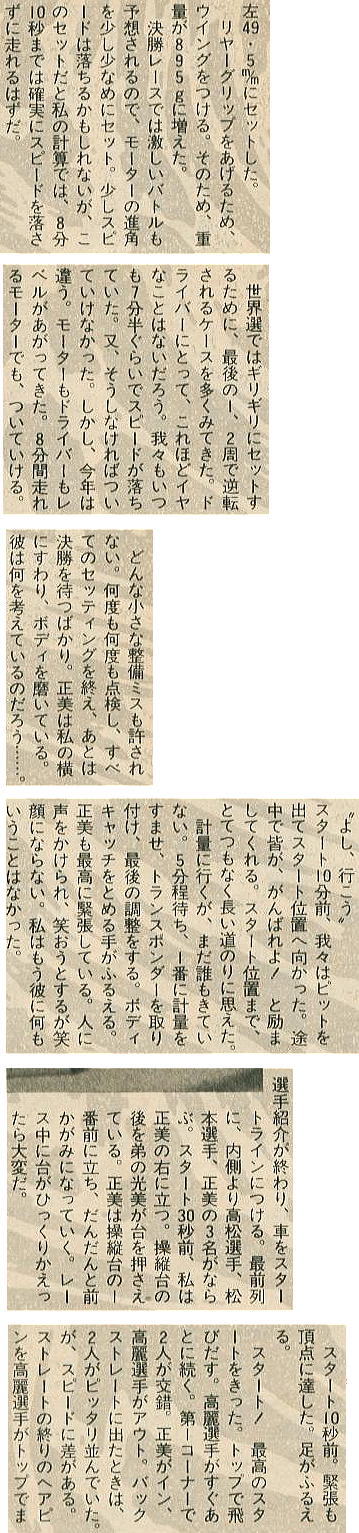 左49・5㎜にセットした。
　リヤーグリップをあげるため、
ウイングをつける。そのため、重
量が895gに増えた。
　決勝レースでは激しいバトルも
予想されるので、モーターの進角
を少し少なめにセット。少しスピ
ードは落ちるかもしれないが、こ
のセットだと私の計算では、8分
10秒までは確実にスピードを落さ
ずに走れるはずだ。
　世界選ではギリギリにセットす
るために、最後の1、2周で逆転
されるケースを多くみてきた。ド
ライバーにとって、これほどイヤ
なことはないだろう。我々もいつ
も7分半ぐらいでスピードが落ち
ていた。又、そうしなければつい
ていけなかった。しかし、今年は
違う。モーターもドライバーもレ
ベルがあがってきた。8分間走れ
るモーターでも、ついていける。
　どんな小さな整備ミスも許され
ない。何度も何度も点検し、すべ
てのセッティングを終え、あとは
決勝を待つばかり。正美は私の横
にすわり、ボディを磨いている。
彼は何を考えているのだろう……。
〝よし、行こう〟
スタート10分前、我々はピットを
出てスタート位置へ向かった。途
中で皆が、がんばれよ！　と励ま
してくれる。スタート位置まで、
とてつもなく長い道のりに思えた。
　計量に行くが、まだ誰もきてい
ない。5分程待ち、1番に計量を
すませ、トランスポンダーを取り
付け、最後の調整をする。ボディ
キャッチをとめる手がふるえる。
正美も最高に緊張している。人に
声をかけられ、笑おうとするが笑
顔にならない。私はもう彼に何も
いうことはなかった。
選手紹介が終わり、車をスター
トラインにつける。最前列
に、内側より高松選手、松
本選手、正美の3名がなら
ぶ。スタート30秒前、私は
正美の右に立つ。操縦台の
後を弟の光美が台を押さえ
ている。正美は操縦台の一
番前に立ち、だんだんと前
かがみになっていく。レー
ス中に台がひっくりかえっ
たら大変だ。
　スタート10秒前。緊張も
頂点に達した。足がふるえ
る。
　スタート！　最高のスタ
ートをきった。トップで飛
びだす。高麗選手がすぐあ
とに続く。第一コーナーで
2人が交錯。正美がイン、
高麗選手がアウト。バック
ストレートに出たときは、
2人がピッタリ並んでいた。
が、スピードに差がある。
ストレートの終りのヘアピ
ンを高麗選手がトップでま